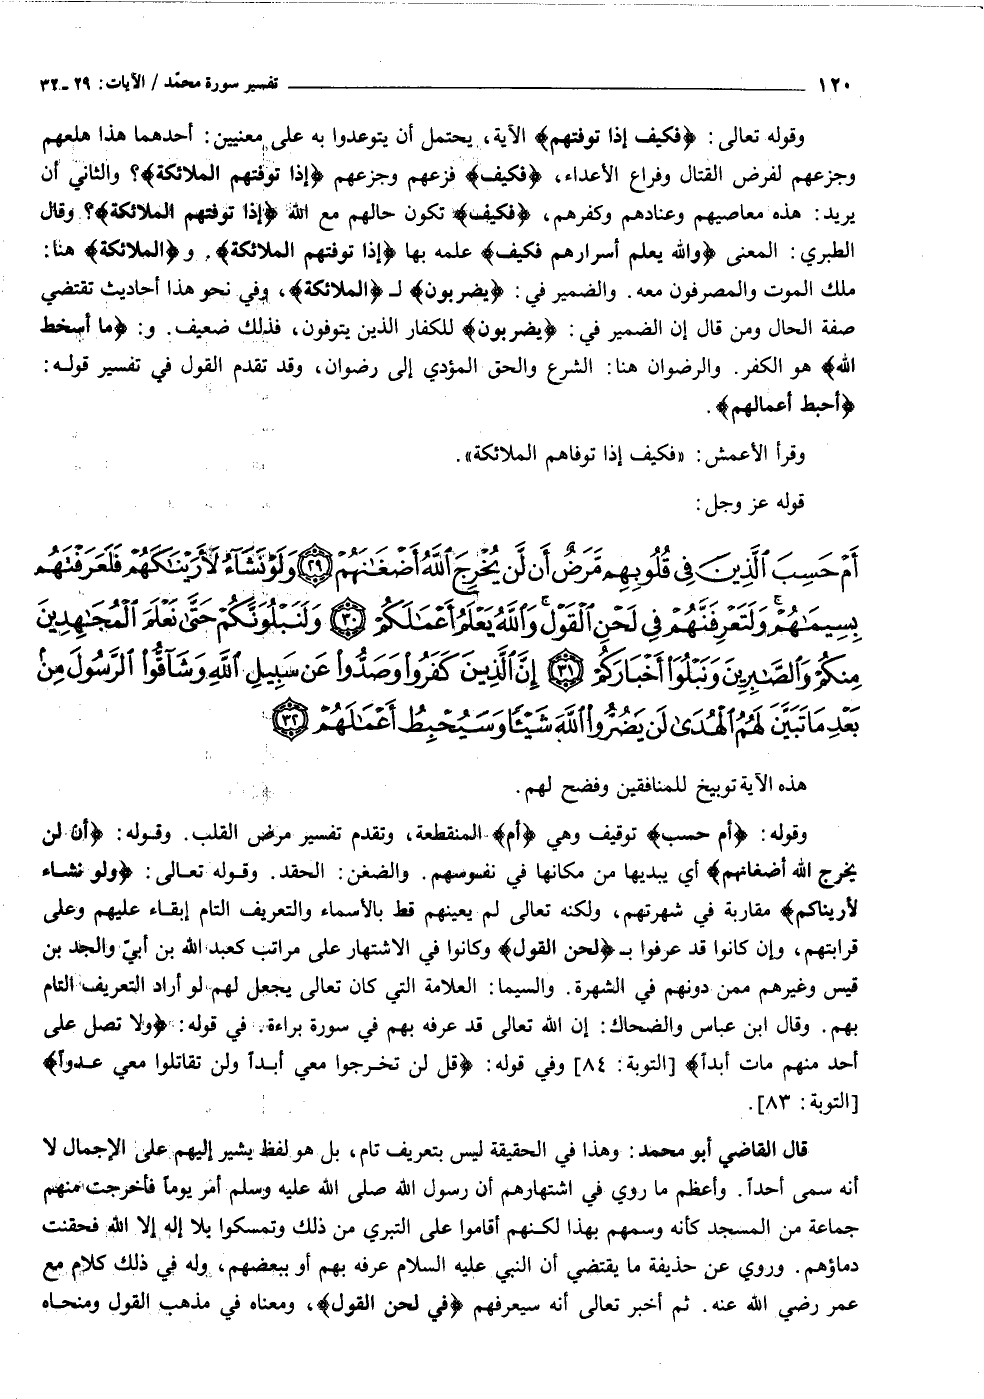 ١٢٠ تفسير سورة محمّد / الآيات: ٢٩ ـ ٣٢
وقوله تعالى: ﴿فكيف إذا توفتهم﴾ الآية، يحتمل أن يتوعدوا به على معنيين: أحدهما هذا هلعهم
وجزعهم لفرض القتال وفراع الأعداء، ﴿فكيف﴾ فزعهم وجزعهم ﴿إذا توفتهم الملائكة﴾؟ والثاني أن
يريد: هذه معاصيهم وعنادهم وكفرهم، ﴿فكيف﴾ تكون حالهم مع الله ﴿إذا توفتهم الملائكة﴾؟ وقال
الطبري: المعنى ﴿والله يعلم أسرارهم فكيف﴾ علمه بها ﴿إذا توفتهم الملائكة﴾. و﴿الملائكة﴾ هنا:
ملك الموت والمصرفون معه. والضمير في: ﴿يضربون﴾ لـ ﴿الملائكة﴾، وفي نحو هذا أحاديث تقتضي
صفة الحال ومن قال إن الضمير في: ﴿يضربون﴾ للكفار الذين يتوفون، فذلك ضعيف. و: ﴿ما أسخط
الله﴾ هو الكفر. والرضوان هنا: الشرع والحق المؤدي إلى رضوان، وقد تقدم القول في تفسير قوله:
﴿أحبط أعمالهم﴾.
وقرأ الأعمش: «فكيف إذا توفاهم الملائكة».
قوله عز وجل:
أَمْ حَسِبَ ٱلَّذِينَ فِى قُلُوبِهِم مَّرَضٌ أَن لَّن يُخْرِجَ ٱللَّهُ أَضْغَٰنَهُمْ ﴿٢٩﴾ وَلَوْ نَشَآءُ لَأَرَيْنَٰكَهُمْ فَلَعَرَفْتَهُم
بِسِيمَٰهُمْ ۚ وَلَتَعْرِفَنَّهُمْ فِى لَحْنِ ٱلْقَوْلِ ۚ وَٱللَّهُ يَعْلَمُ أَعْمَٰلَكُمْ ﴿٣٠﴾ وَلَنَبْلُوَنَّكُمْ حَتَّىٰ نَعْلَمَ ٱلْمُجَٰهِدِينَ
مِنكُمْ وَٱلصَّٰبِرِينَ وَنَبْلُوَا۟ أَخْبَارَكُمْ ﴿٣١﴾ إِنَّ ٱلَّذِينَ كَفَرُوا۟ وَصَدُّوا۟ عَن سَبِيلِ ٱللَّهِ وَشَآقُّوا۟ ٱلرَّسُولَ مِنۢ
بَعْدِ مَا تَبَيَّنَ لَهُمُ ٱلْهُدَىٰ لَن يَضُرُّوا۟ ٱللَّهَ شَيْـًٔا وَسَيُحْبِطُ أَعْمَٰلَهُمْ ﴿٣٢﴾
هذه الآية توبيخ للمنافقين وفضح لهم.
وقوله: ﴿أم حسب﴾ توقيف وهي ﴿أم﴾ المنقطعة، وتقدم تفسير مرض القلب. وقوله: ﴿أن لن
يخرج الله أضغانهم﴾ أي يبديها من مكانها في نفوسهم. والضغن: الحقد. وقوله تعالى: ﴿ولو نشاء
لأريناكم﴾ مقاربة في شهرتهم، ولكنه تعالى لم يعينهم قط بالأسماء والتعريف التام إبقاء عليهم وعلى
قرابتهم، وإن كانوا قد عرفوا بـ ﴿لحن القول﴾ وكانوا في الاشتهار على مراتب كعبد الله بن أبيّ والجد بن
قيس وغيرهم ممن دونهم في الشهرة. والسيما: العلامة التي كان تعالى يجعل لهم لو أراد التعريف التام
بهم. وقال ابن عباس والضحاك: إن الله تعالى قد عرفه بهم في سورة براءة. في قوله: ﴿ولا تصل على
أحد منهم مات أبداً﴾ [التوبة: ٨٤] وفي قوله: ﴿قل لن تخرجوا معي أبداً ولن تقاتلوا معي عدواً﴾
[التوبة: ٨٣].
قال القاضي أبو محمد: وهذا في الحقيقة ليس بتعريف تام، بل هو لفظ يشير إليهم على الإجمال لا
أنه سمى أحداً. وأعظم ما روي في اشتهارهم أن رسول الله صلى الله عليه وسلم أمر يوماً فأخرجت منهم
جماعة من المسجد كأنه وسمهم بهذا لكنهم أقاموا على التبري من ذلك وتمسكوا بلا إله إلا الله فحقنت
دماؤهم. وروي عن حذيفة ما يقتضي أن النبي عليه السلام عرفه بهم أو ببعضهم، وله في ذلك كلام مع
عمر رضي الله عنه. ثم أخبر تعالى أنه سيعرفهم ﴿في لحن القول﴾، ومعناه في مذهب القول ومنحاه